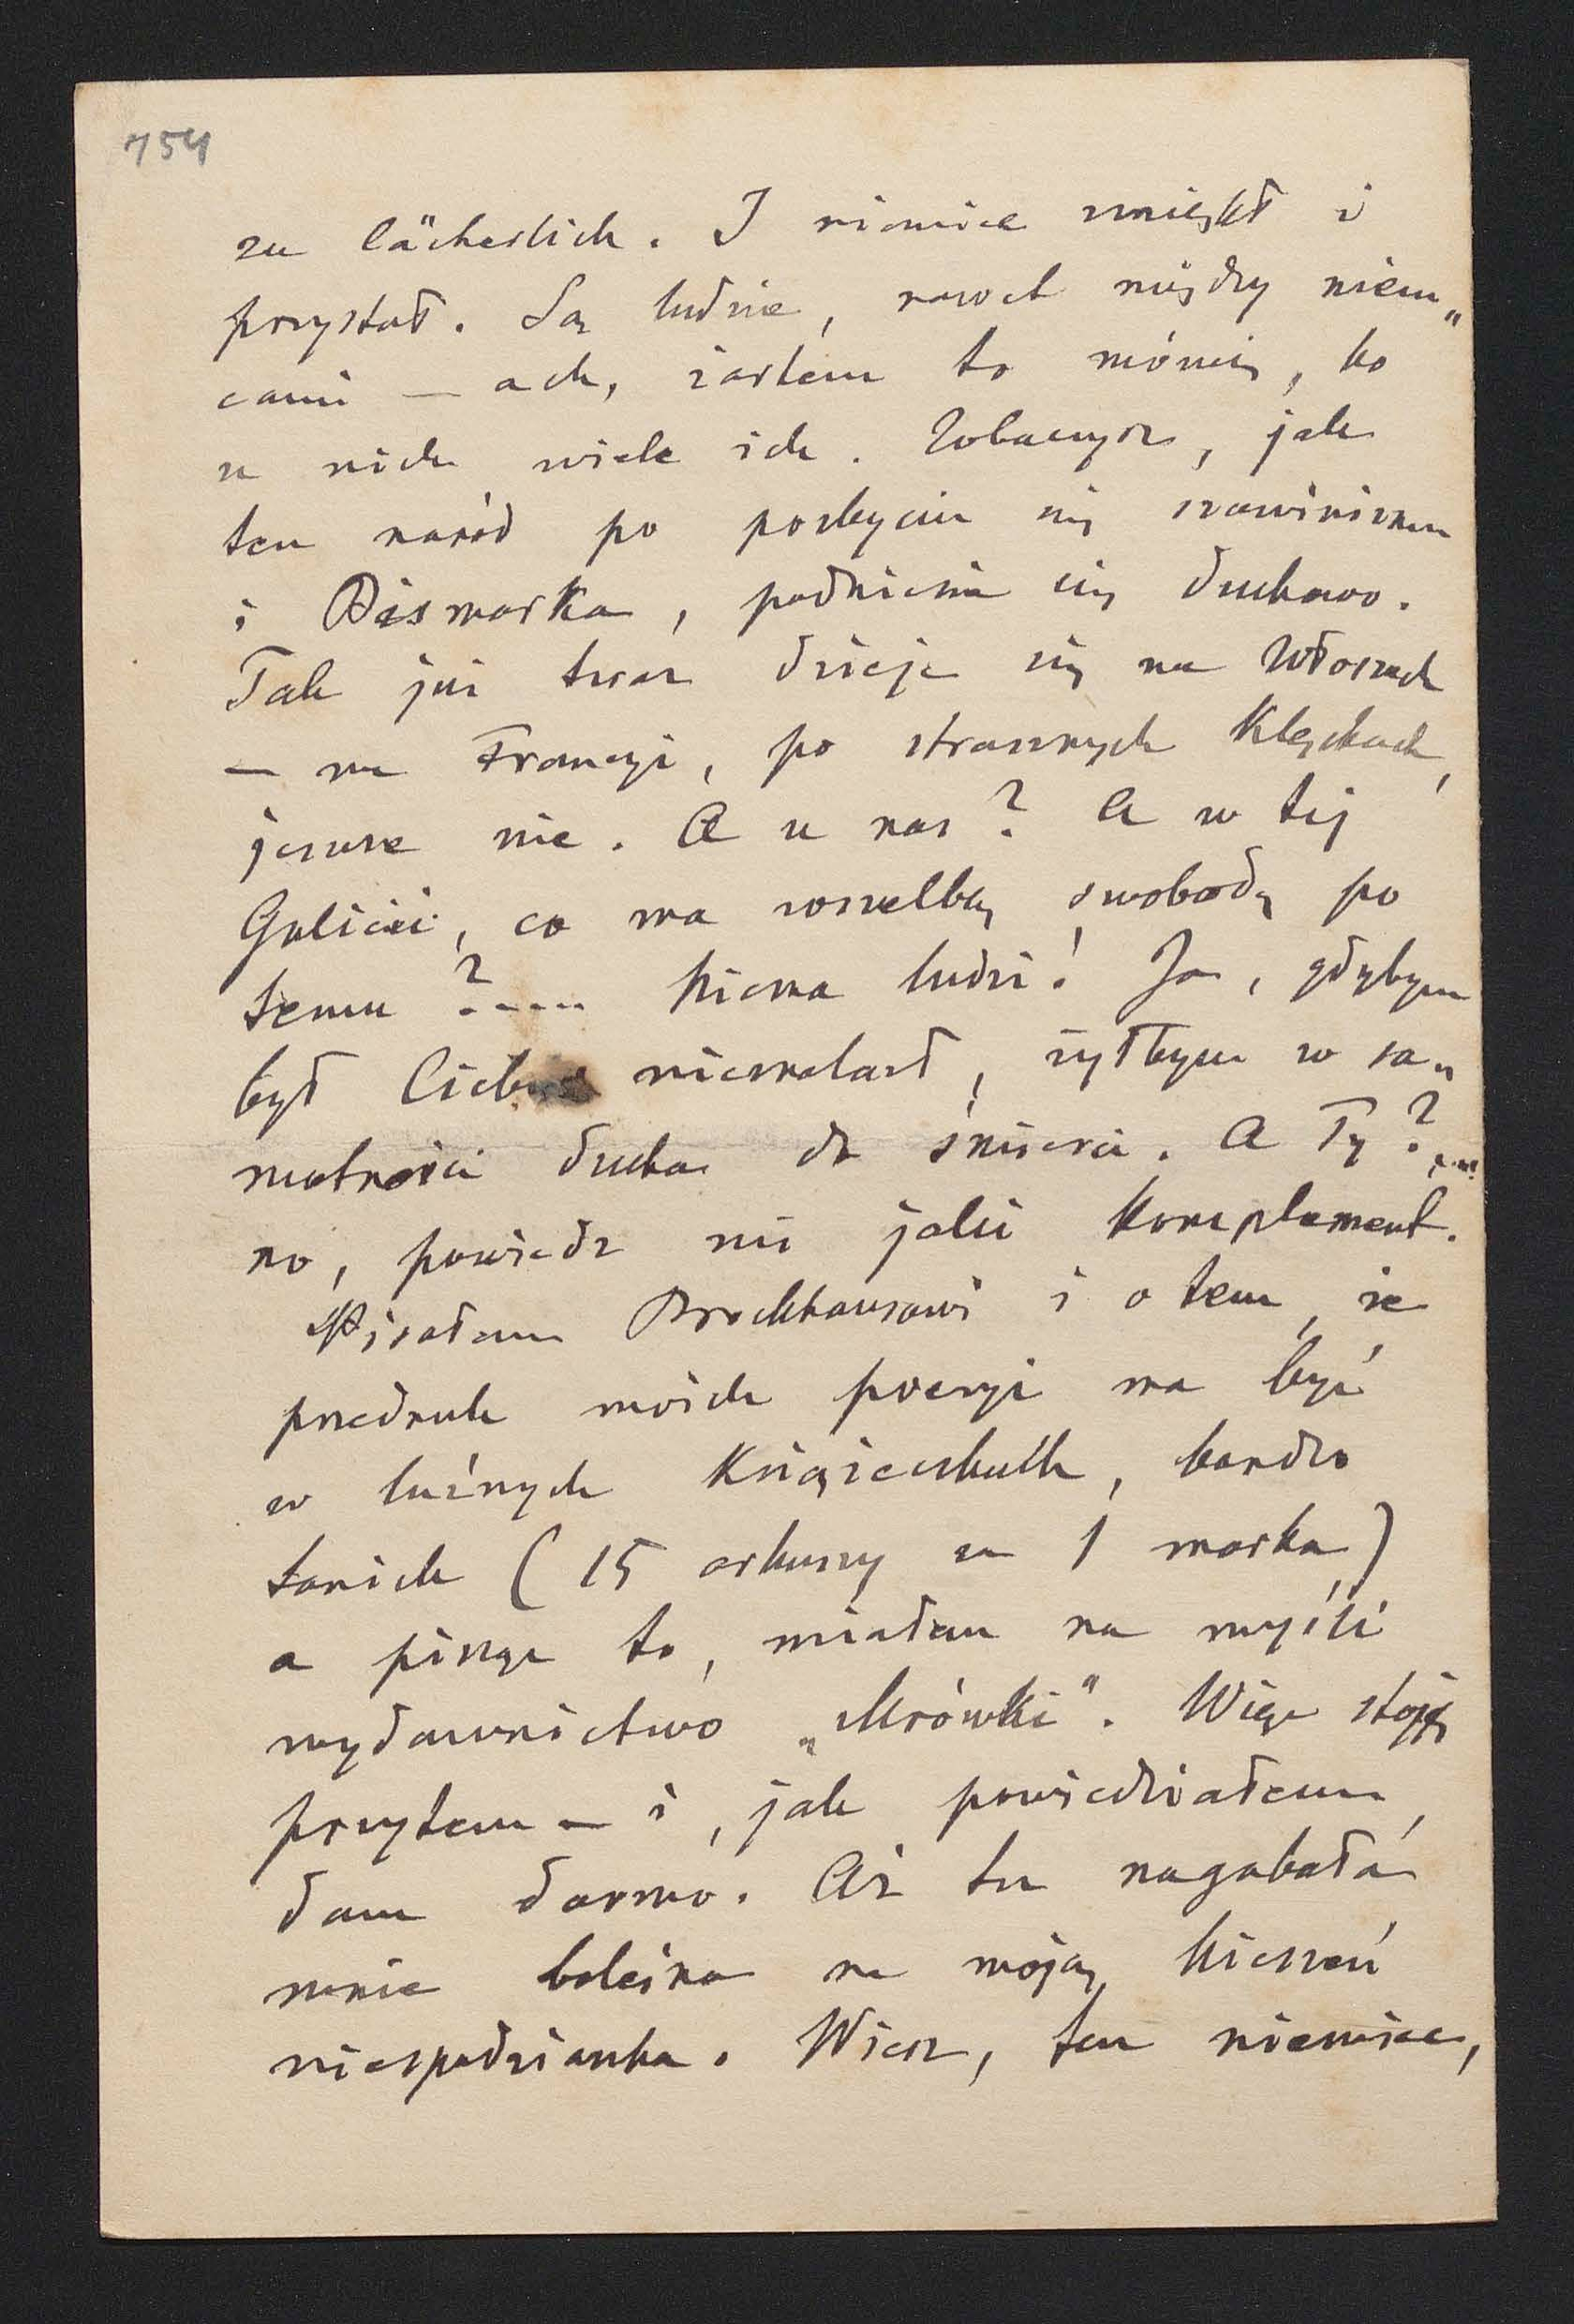 754
zu lächerlich. I niemiec zmiękł i
przystał. Są ludzie, nawet między niem„
cami — ach, żartem to mówię, bo
u nich wiele ich. Zobaczysz, jak
ten naród po pozbyciu się szowinizmu
i Bismarka, podniesie się duchowo.
Tak już teraz dzieje się we Włoszech
— we Francyi, po strasznych klęskach,
jeszcze nie. A u nas? A w tej
Galicii, co ma wszelką swobodę po
temu?.... Niema ludzi! Ja, gdybym
był Ciebie nieznalazł, żyłbym w sa„
motności ducha do śmierci. A Ty?....
no, powiedz mi jaki komplement.
Pisałem Brockhausowi i o tem, że
przedruk moich poezyi ma być
w luźnych książeczkach, bardzo
tanich (15 arkuszy za 1 marka)
a pisząc to, miałem na myśli
wydawnictwo „Mrówki". Więc stoję
przytem — i, jak powiedziałem,
dam darmo. Aż tu nagabała
mnie boleśna na moją kieszeń
niespodzianka. Wiesz, ten niemiec,